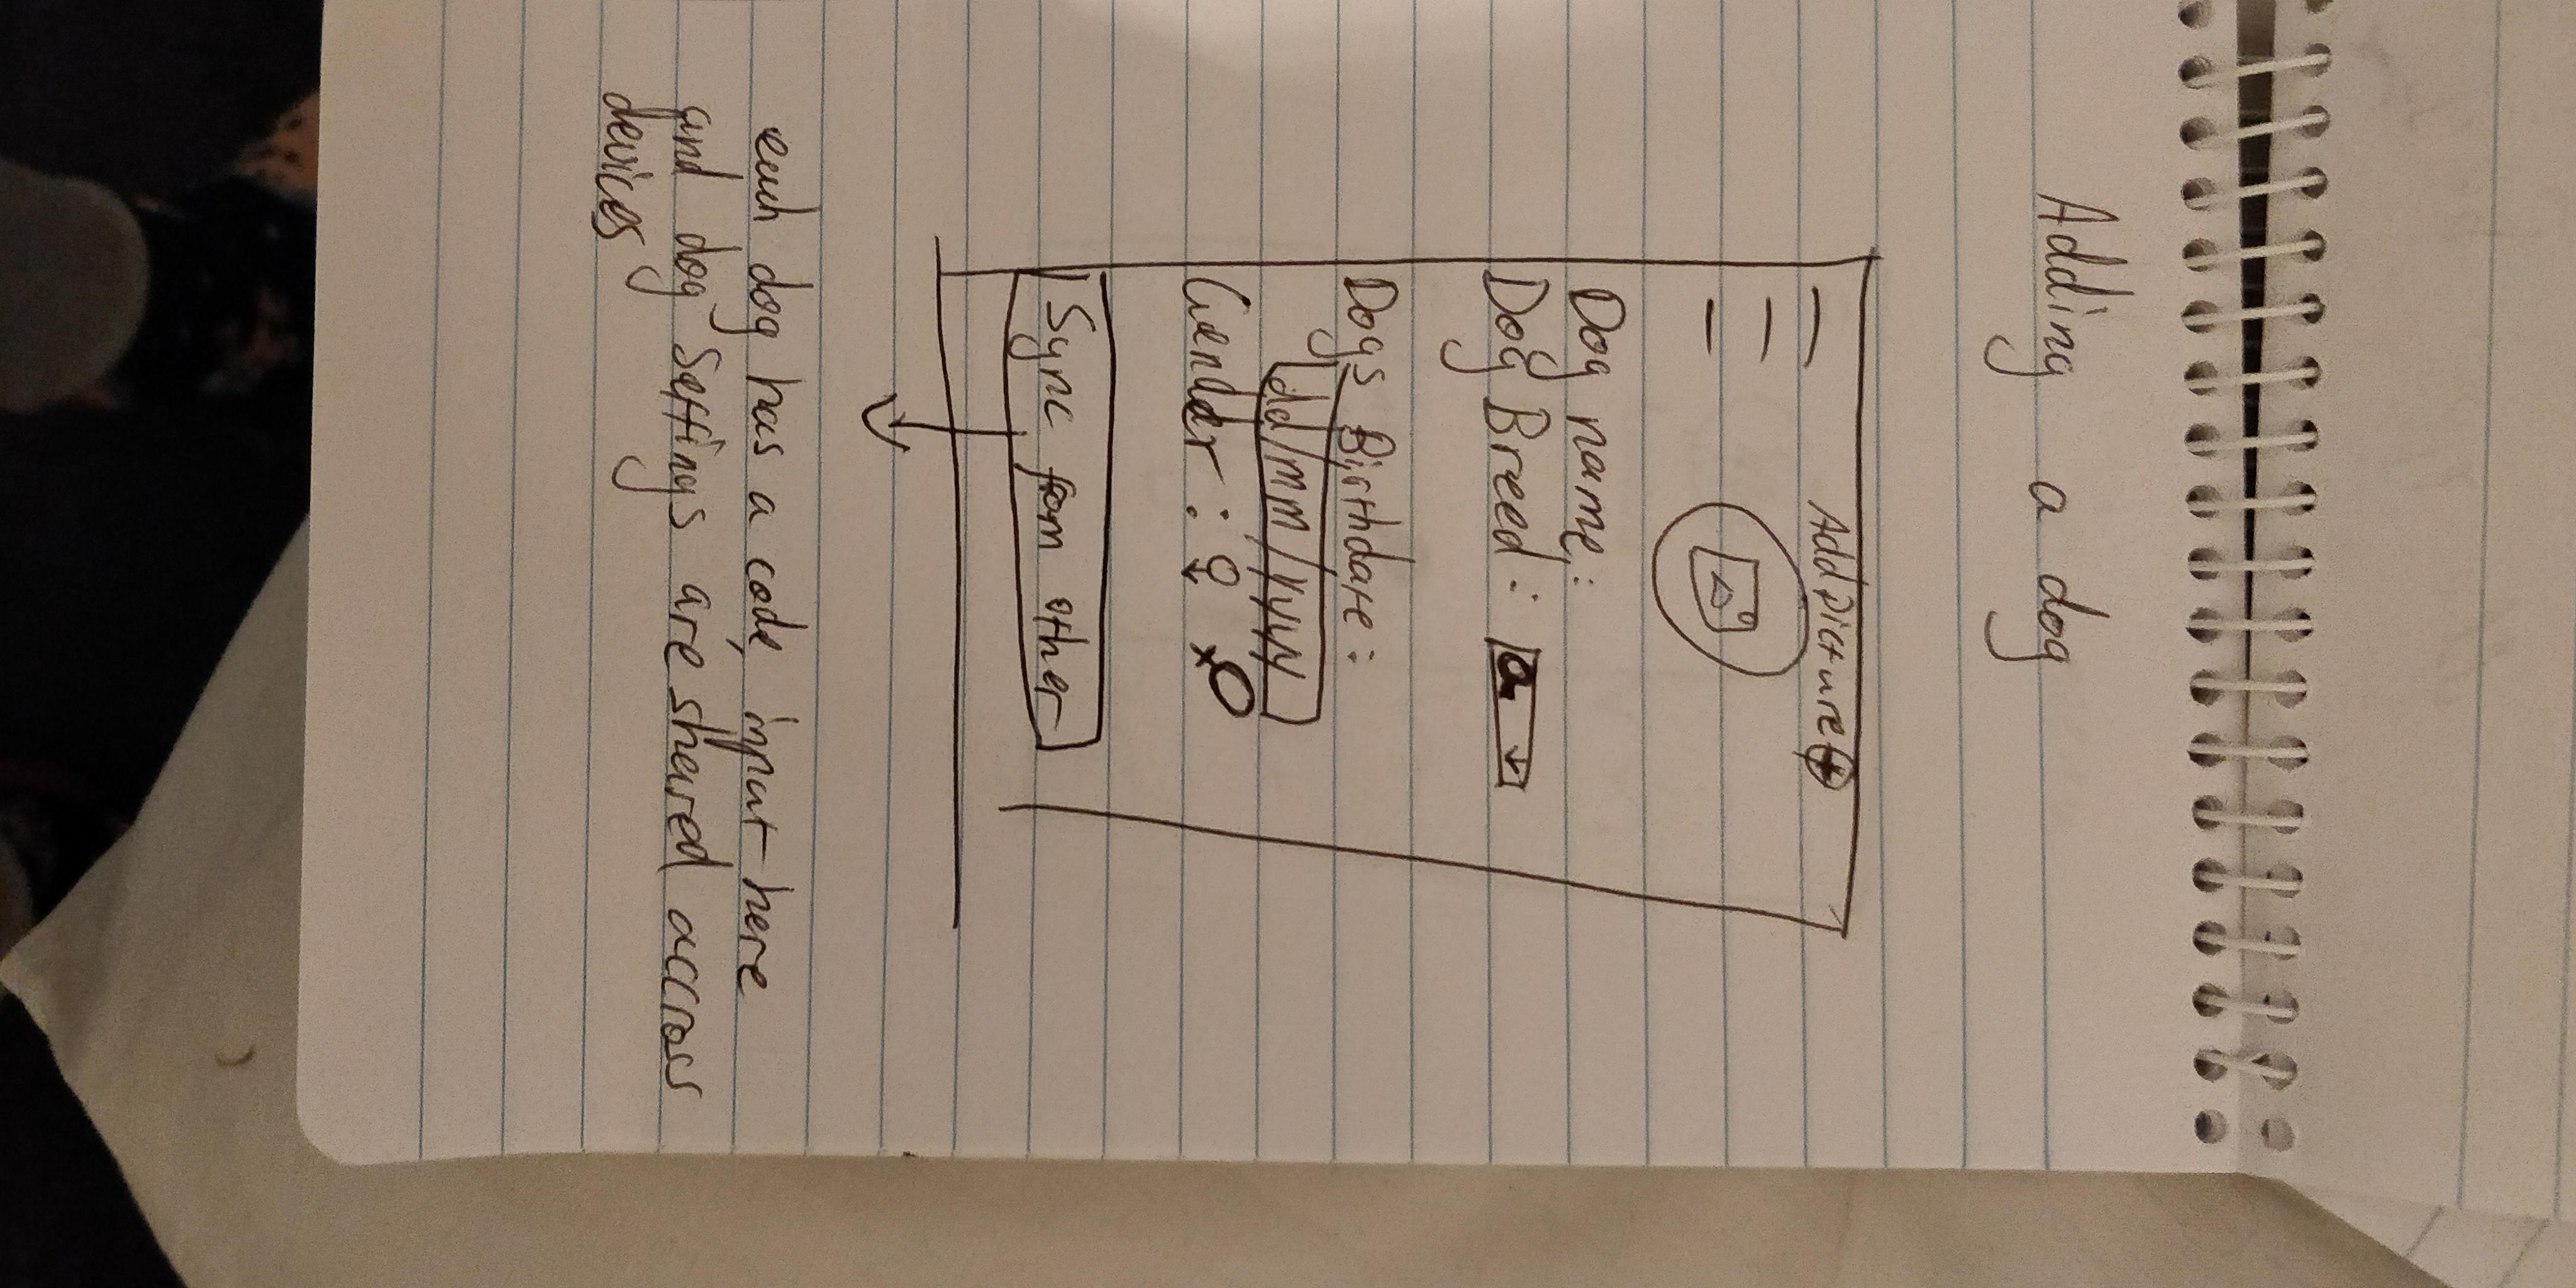 Adding a dog
Add Picture
Dog name:
Dog Breed:
Dogs Birthdate:
dd/mm/yyyy
Gender:
Sync from other
each dog has a code, input here
and dog settings are shared accross
devices